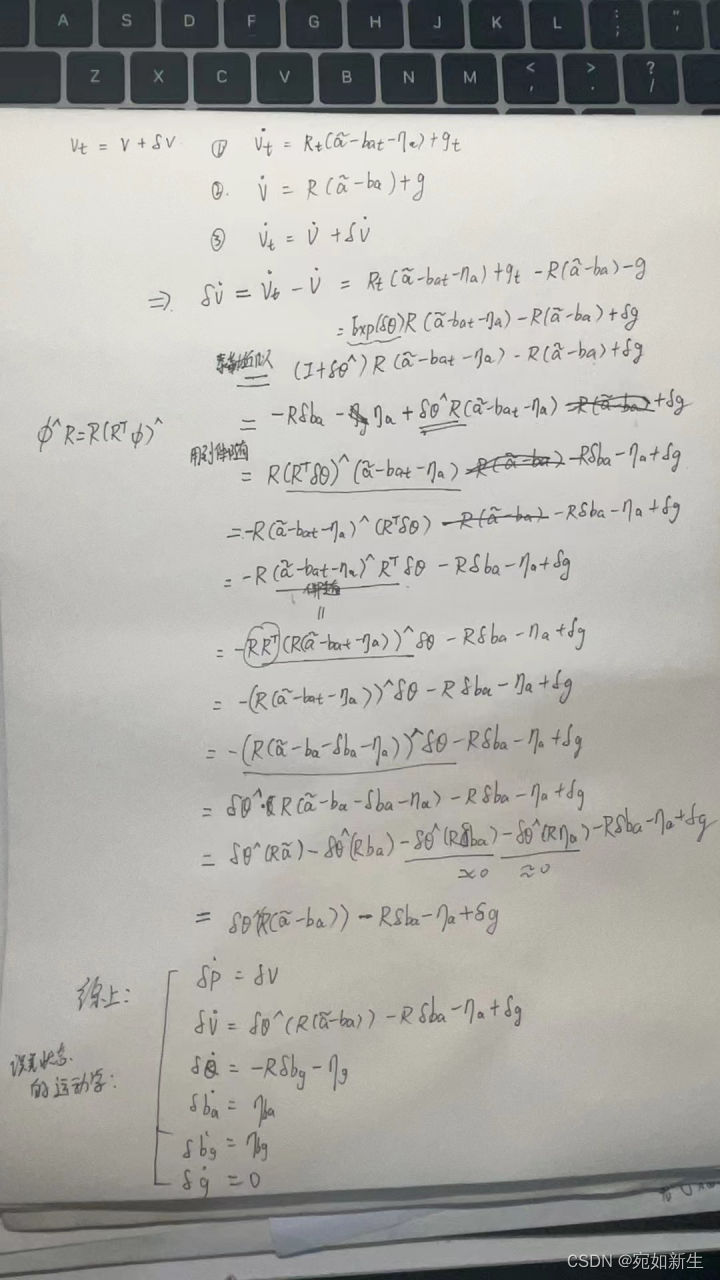 A S D F G H J K L : ; " '
Z X C V B N M < , > . ? /
Vₜ = V + δV ① V̇ₜ = Rₜ(ã-baₜ-ηₐ)+gₜ
②. V̇ = R(ã-ba)+g
③ V̇ₜ = V̇ + δV̇
⇒ δV̇ = V̇ₜ - V̇ = Rₜ(ã-baₜ-ηₐ)+gₜ -R(ã-ba)-g
= Exp(δθ)R(ã-baₜ-ηₐ)-R(ã-ba)+δg
= (I+δθ^)R(ã-baₜ-ηₐ)-R(ã-ba)+δg
φ^R=R(Rᵀφ)^ = -Rδba - ηₐ + δθ^R(ã-baₜ-ηₐ) -R(ã-ba) +δg
用到伴随
= R(Rᵀδθ)^(ã-baₜ-ηₐ) -R(ã-ba) -Rδba-ηₐ+δg
= -R(ã-baₜ-ηₐ)^(Rᵀδθ) -R(ã-ba) -Rδba-ηₐ+δg
= -R(ã-baₜ-ηₐ)^Rᵀδθ -Rδba-ηₐ+δg
||
= -RRᵀ(R(ã-baₜ-ηₐ))^δθ -Rδba-ηₐ+δg
= -(R(ã-baₜ-ηₐ))^δθ -Rδba-ηₐ+δg
= -(R(ã-ba-δba-ηₐ))^δθ-Rδba-ηₐ+δg
= δθ^·(R(ã-ba-δba-ηₐ)-Rδba-ηₐ+δg
= δθ^(Rã)-δθ^(Rba)-δθ^(Rδba)-δθ^(Rηₐ)-Rδba-ηₐ+δg
≈0 ≈0
= δθ^(R(ã-ba))-Rδba-ηₐ+δg
综上: δṗ = δV
δV̇ = δθ^(R(ã-ba))-Rδba-ηₐ+δg
误差状态
的运动学: δθ̇ = -Rδbg-ηg
δḃₐ = ηba
δḃg = ηbg
δġ = 0
CSDN @宛如新生